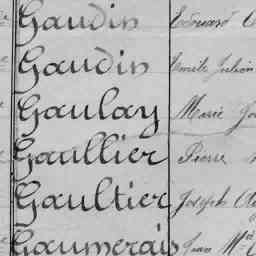 Gaudin Edouard
Gaudin Emile Julien
Gaulay Marie
Gaullier Pierre
Gaultier Joseph
Gaumerais Jean M